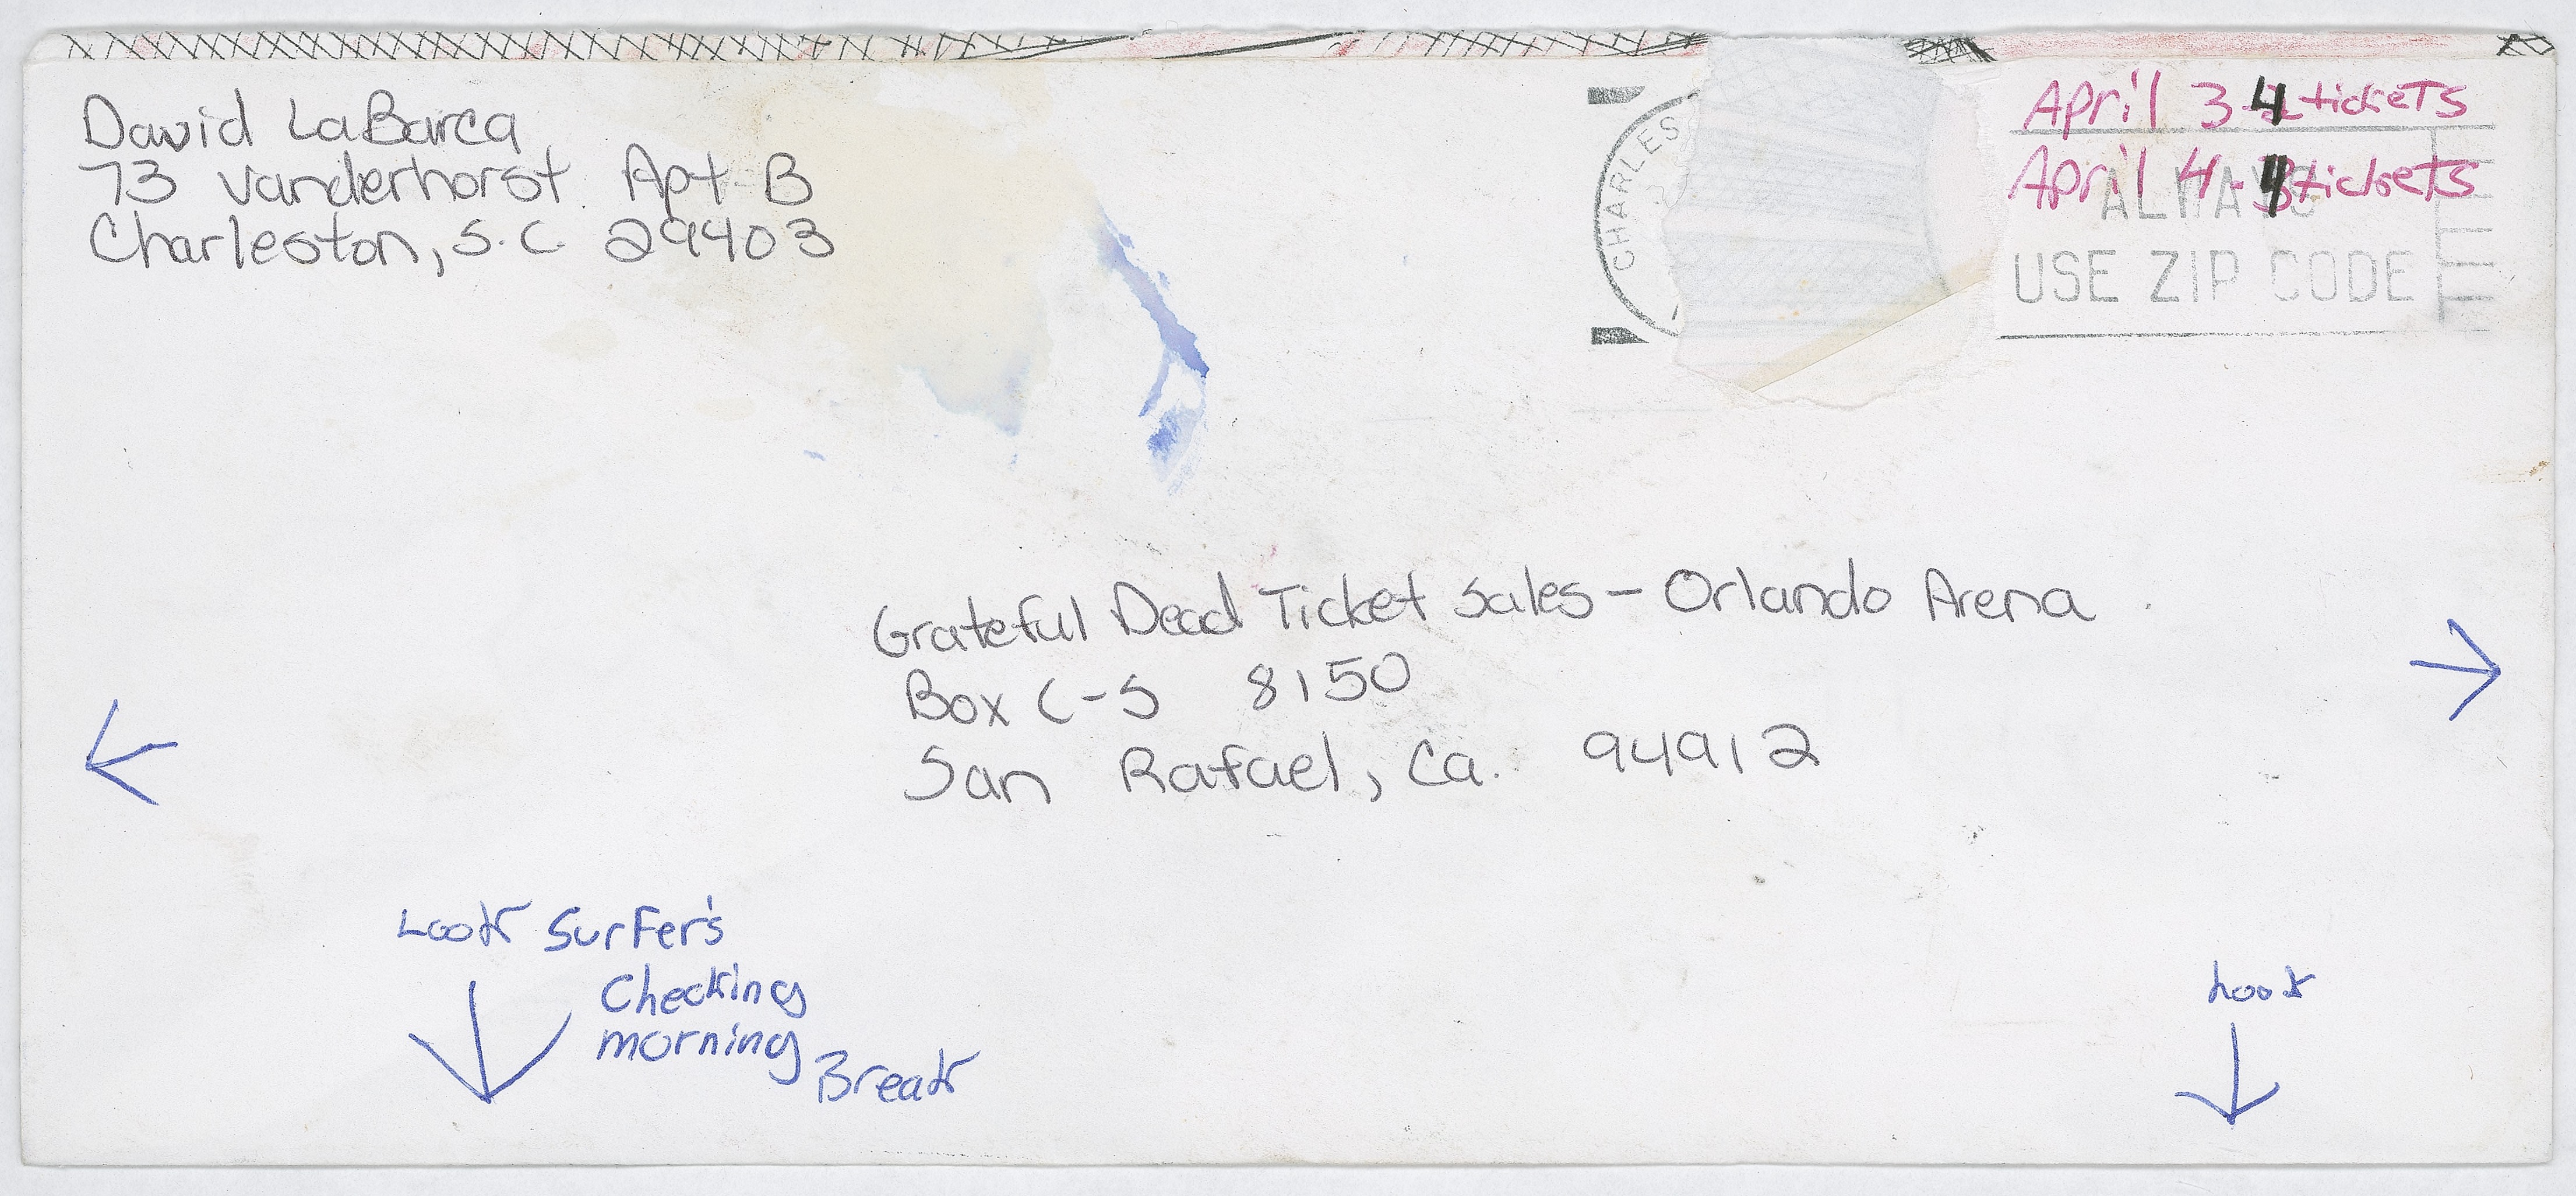 David LaBarca
73 Vanderhorst Apt B
Charleston, S.C. 29403
CHARLES
April 3 4 tickets
April 4 - 4 tickets
ALWAYS
USE ZIP CODE
Grateful Dead Ticket Sales - Orlando Arena
Box C-S 8150
San Rafael, Ca. 94912
Look Surfer's
Checking
morning
Break
Look